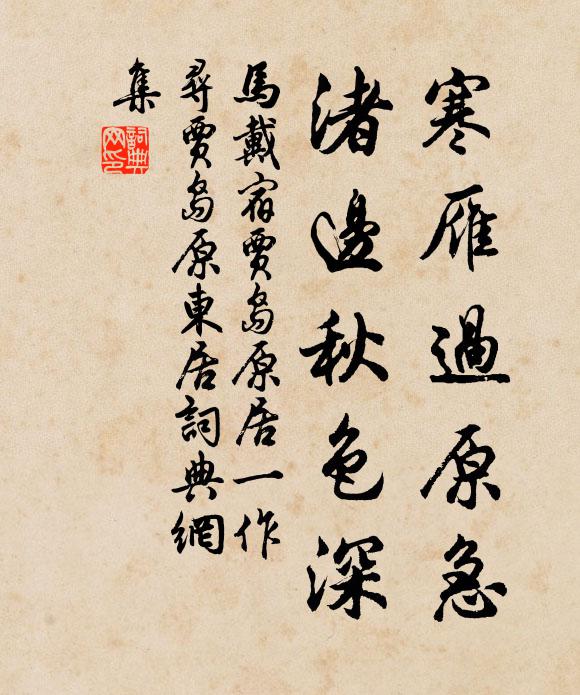 寒雁過原急
渚邊秋色深
馬戴宿賈島原居一作
尋賈島原東居詞典網
集
詞典
网印